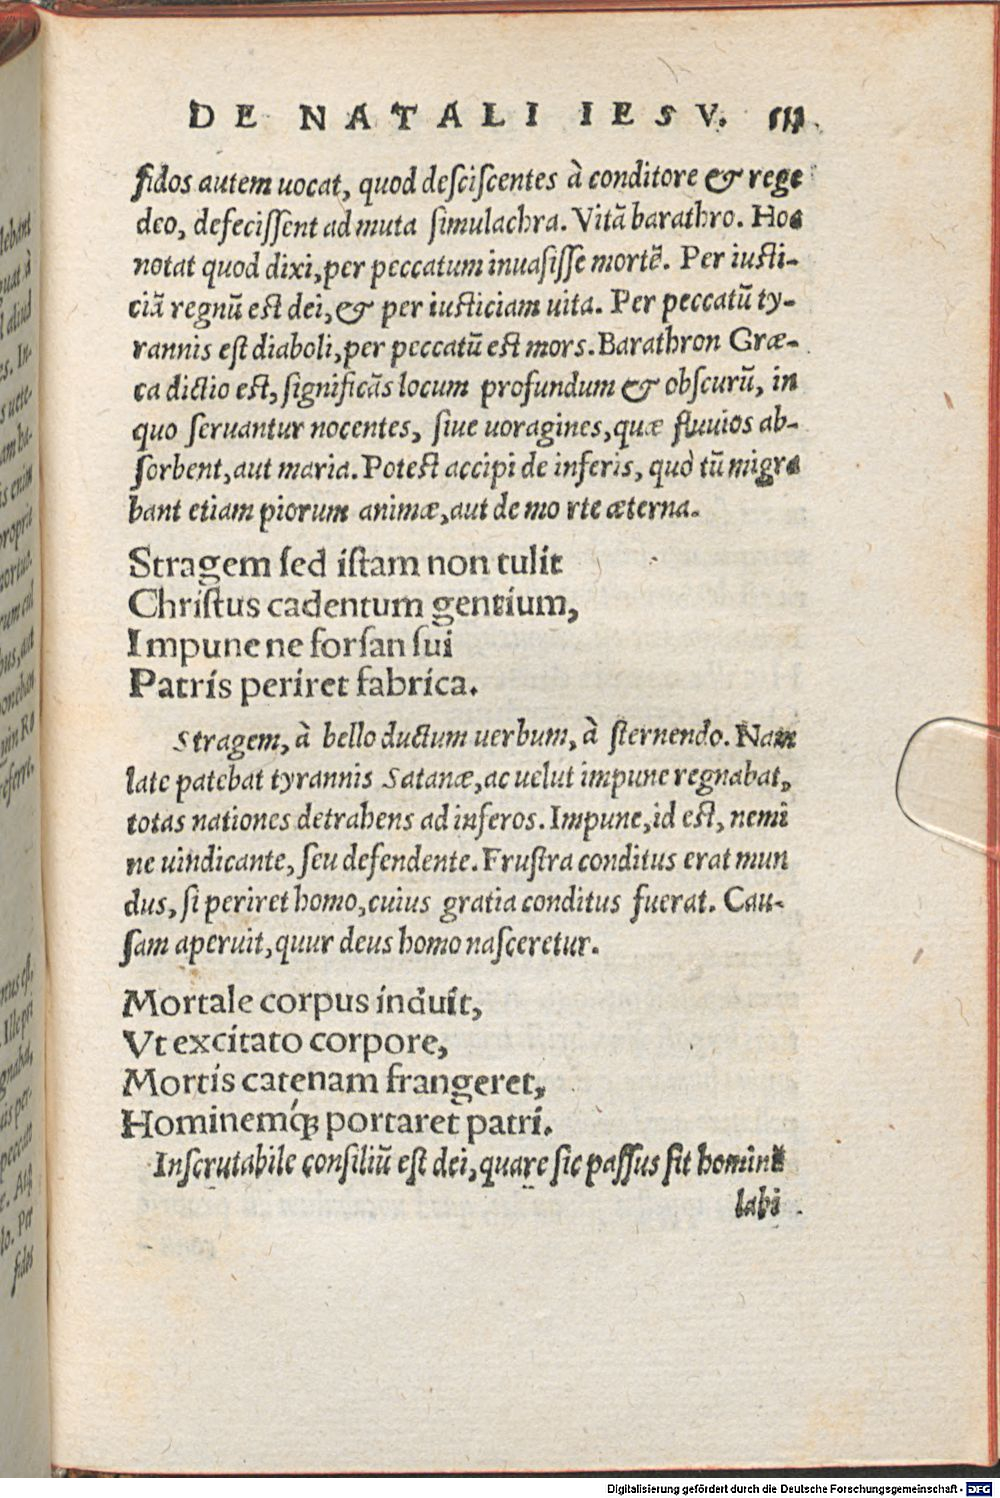 DE NATALI IESV.
fidos autem uocat, quod desciscentes à conditore & rege
deo, defecissent ad muta simulachra. Vitā barathro. Hoc
notat quod dixi, per peccatum inuasisse mortē. Per iusti-
ciā regnū est dei, & per iusticiam uita. Per peccatū ty-
rannis est diaboli, per peccatū est mors. Barathron Græ-
ca dictio est, significās locum profundum & obscurū, in
quo seruantur nocentes, siue uoragines, quæ fluuios ab-
sorbent, aut maria. Potest accipi de inferis, quò tū migra
bant etiam piorum animæ, aut de mo rte æterna.
Stragem sed istam non tulit
Christus cadentum gentium,
Impune ne forsan sui
Patris periret fabrica.
Stragem, à bello ductum uerbum, à sternendo. Nam
late patebat tyrannis Satanæ, ac uelut impune regnabat,
totas nationes detrahens ad inferos. Impune, id est, nemi
ne uindicante, seu defendente. Frustra conditus erat mun
dus, si periret homo, cuius gratia conditus fuerat. Cau-
sam aperuit, quur deus homo nasceretur.
Mortale corpus induit,
Vt excitato corpore,
Mortis catenam frangeret,
Hominemq́ꝫ portaret patri.
Inscrutabile consiliū est dei, quare sic passus sit hominē
labi
Digitalisierung gefördert durch die Deutsche Forschungsgemeinschaft - DFG